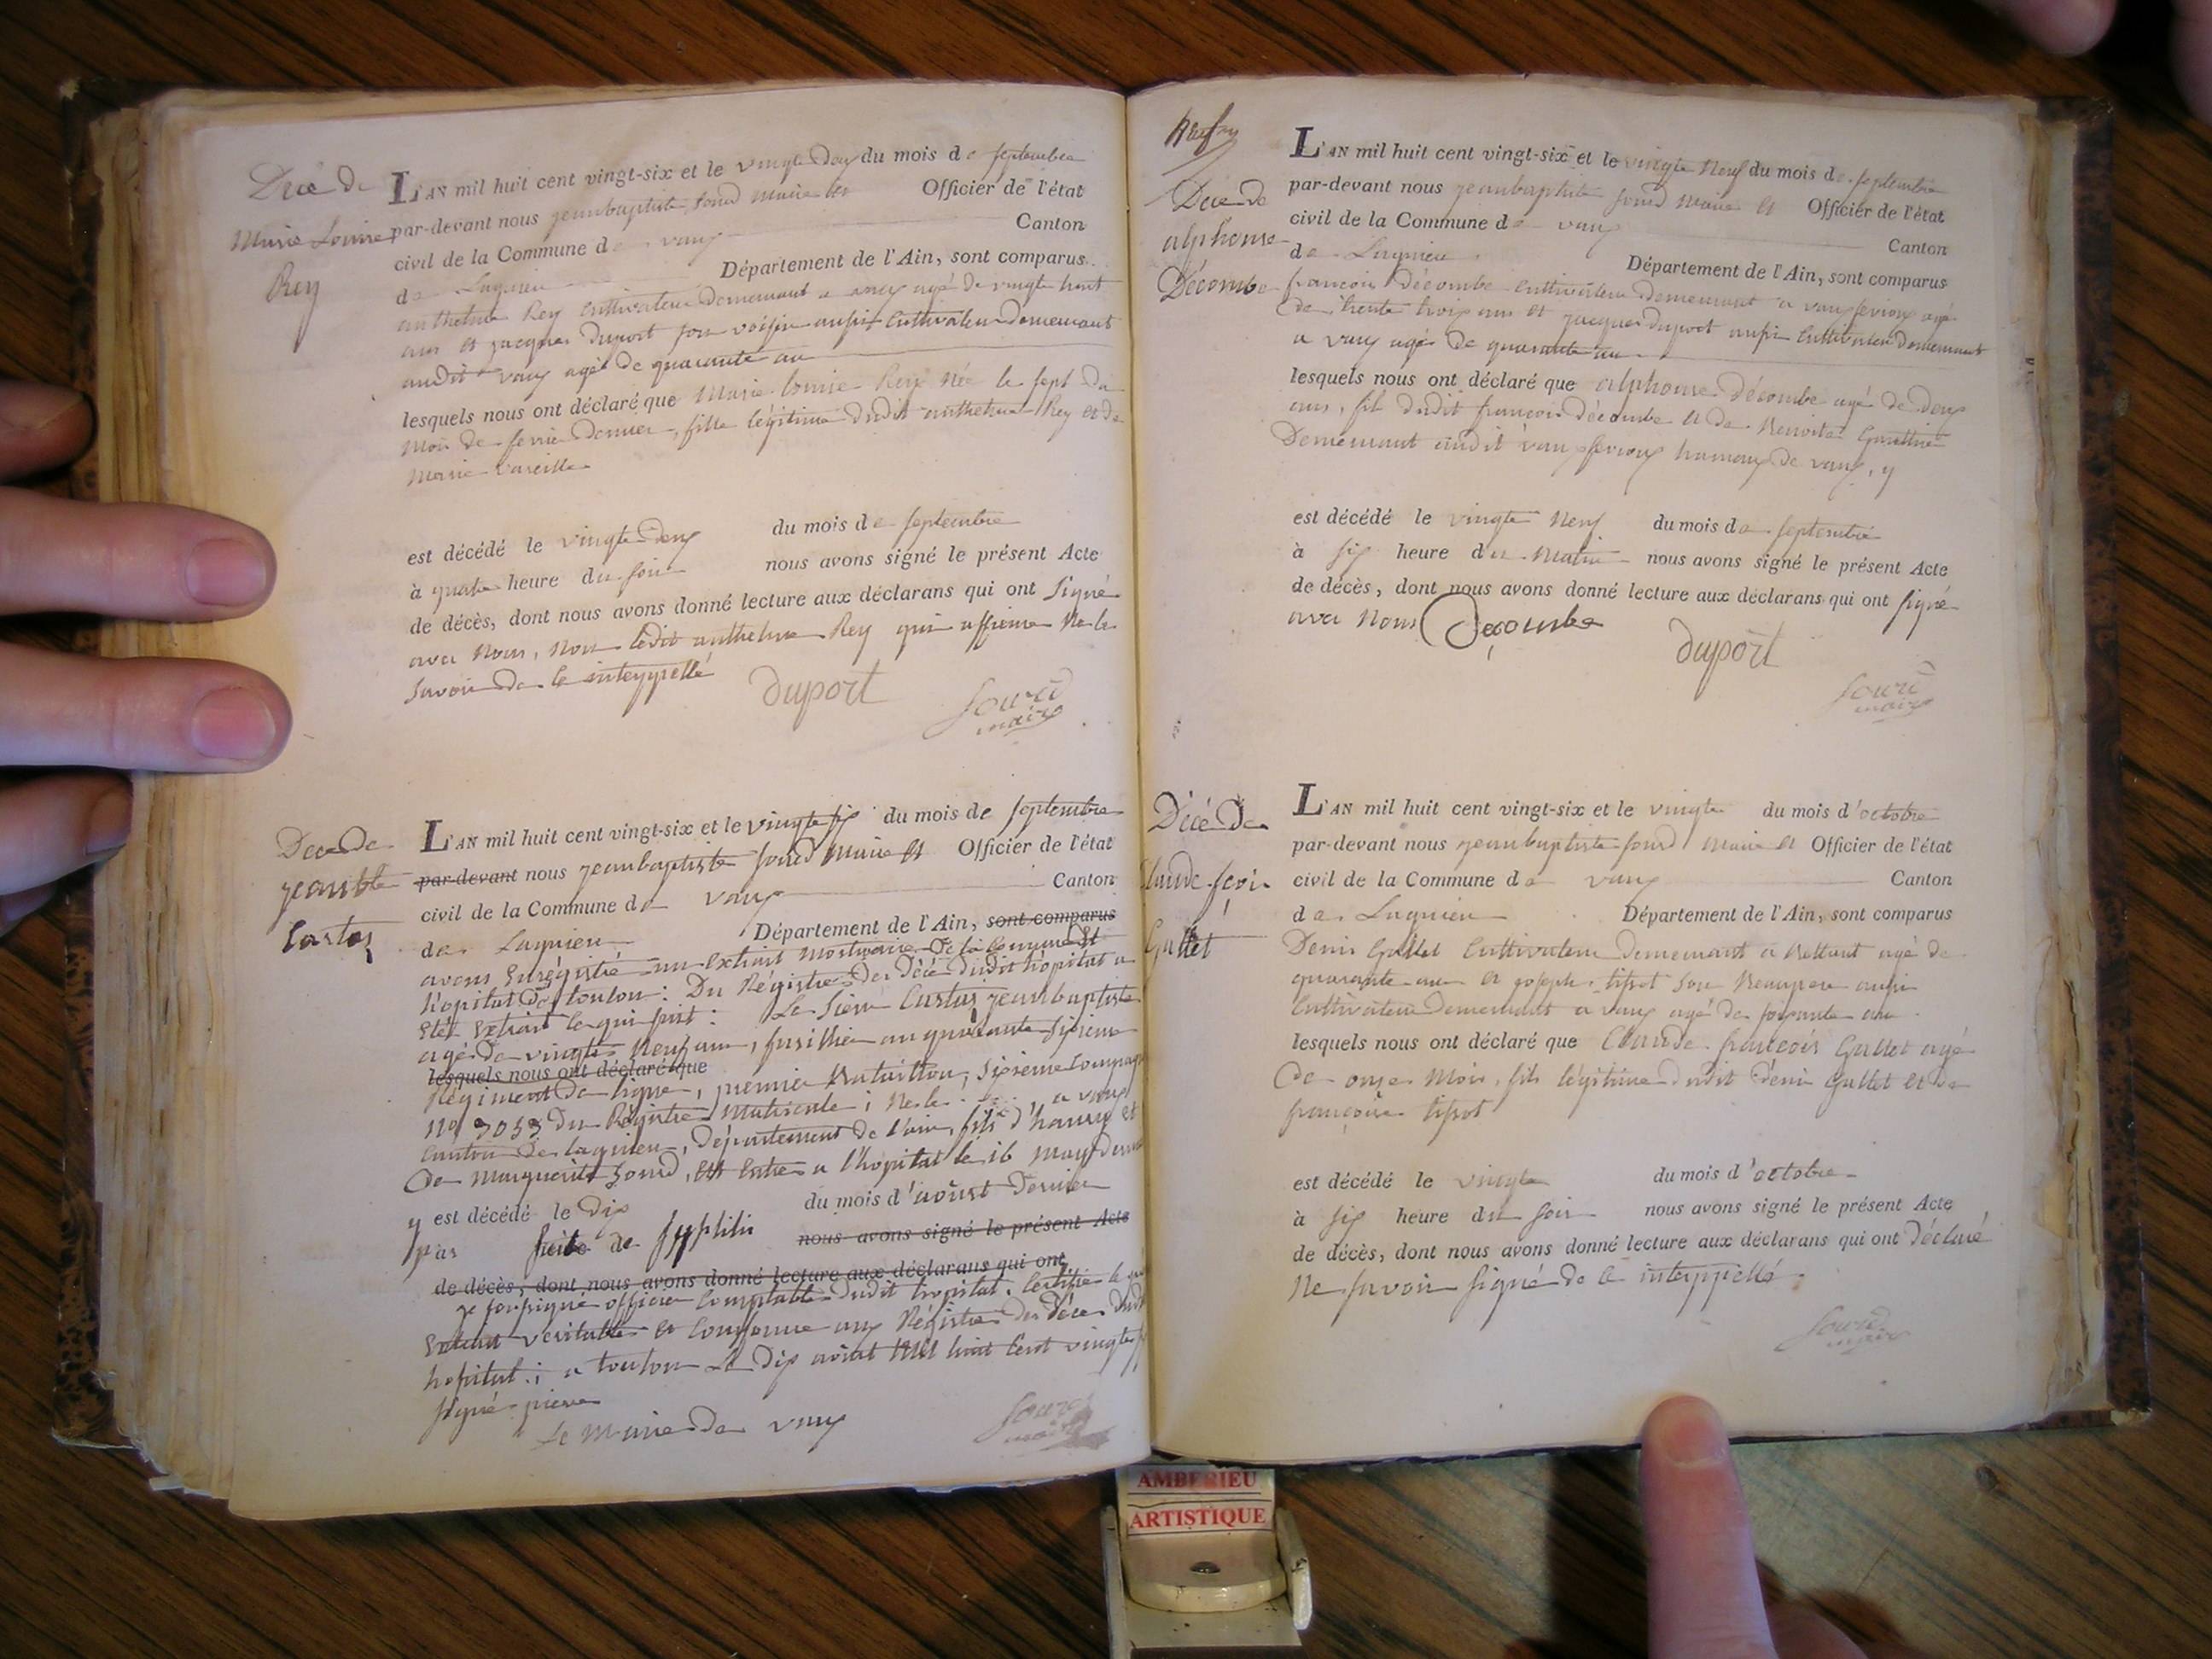 Décè de
Marie Louise
Rey
L'AN mil huit cent vingt-six et le vingte deux du mois de septembre
par-devant nous jeanbaptiste sourd maire et Officier de l'état
civil de la Commune de vaux Canton
de Lagnieu Département de l'Ain, sont comparus
anthelme Rey Cultivateur demeurant a vaux agé de vingte huit
ans et jacques duport son voisin aussi Cultivateur demeurant
audit vaux agé de quarante an
lesquels nous ont déclaré que Marie Louise Rey Née le sept du
mois de dernier, fille légitime dudit anthelme Rey et de
Marie vareille
est décédé le vingte deux du mois de septembre
à quatre heure du soir nous avons signé le présent Acte
de décès, dont nous avons donné lecture aux déclarans qui ont signé
avec Nous, Non ledit anthelme Rey qui affirme Ne le
savoir de ce interppellé
duport
Sourd
maire
Décè de
jeanbte
Castaz
L'AN mil huit cent vingt-six et le vingte six du mois de septembre
par-devant nous jeanbaptiste sourd Maire et Officier de l'état
civil de la Commune de vaux Canton
de Lagnieu Département de l'Ain, sont comparus
avons Enrégistré un Extrait Mortuaire de la commune et
hôpital de toulon : Du Régistre des Décè dudit hôpital a
Eté Extrait ce qui suit : Le sieur Castaz jeanbaptiste
agé de vingte Neuf ans, fusillier au quarante sixieme
lesquels nous ont déclaré que
Régiment de ligne, premier Bataillon, sixieme Compag
No 3053 du Régistre Matricule ; Né le .... a vaux
Canton de lagnieu, département de l'ain, fils d'hanry et
De Marguerite Sourd, Est Entré a l'hôpital le 16 may dernier
y est décédé le dix du mois d'août Dernier
par suite de syphilis nous avons signé le présent Acte
de décès, dont nous avons donné lecture aux déclarans qui ont
je soussigné officier Comptable dudit hopital, Certifie le
Extrait véritable et Conforme aux Régistre des Décè dudit
hopital ; a toulon le dix août Mil huit Cent vingte
signé
Le Maire de vaux
Sourd
maire
Décè de
alphonse
Décombe
L'AN mil huit cent vingt-six et le vingte Neuf du mois de septembre
par-devant nous jeanbaptiste sourd Maire et Officier de l'état
civil de la Commune de vaux Canton
de Lagnieu Département de l'Ain, sont comparus
françois Décombe Cultivateur demeurant a vaux fevroux agé
de trente trois ans et jacques duport aussi Cultivateur demeurant
a vaux agé de quarante an
lesquels nous ont déclaré que alphonse Décombe agé de deux
ans, fils dudit françois décombe et de Benoite Gauthier
Demeurant audit vaux fevroux hameaux de vaux, y
est décédé le vingte Neuf du mois de septembre
à six heure du Matin nous avons signé le présent Acte
de décès, dont nous avons donné lecture aux déclarans qui ont signé
avec Nous Decombe
duport
Sourd
maire
Décè de
Claude fçois
Gullet
L'AN mil huit cent vingt-six et le vingte du mois d'octobre
par-devant nous jeanbaptiste sourd Maire et Officier de l'état
civil de la Commune de vaux Canton
de Lagnieu Département de l'Ain, sont comparus
Denis Gullet Cultivateur demeurant a Bettant agé de
quarante an et joseph tissot son Beaupere aussi
Cultivateur demeurant a vaux agé de soixante an
lesquels nous ont déclaré que Claude françois Gullet agé
de onze Mois, fils légitime dudit Denis Gullet et de
françoise tissot
est décédé le vingte du mois d'octobre
à six heure du soir nous avons signé le présent Acte
de décès, dont nous avons donné lecture aux déclarans qui ont déclaré
Ne savoir signé de ce interppellé
Sourd
maire
AMBERIEU
ARTISTIQUE